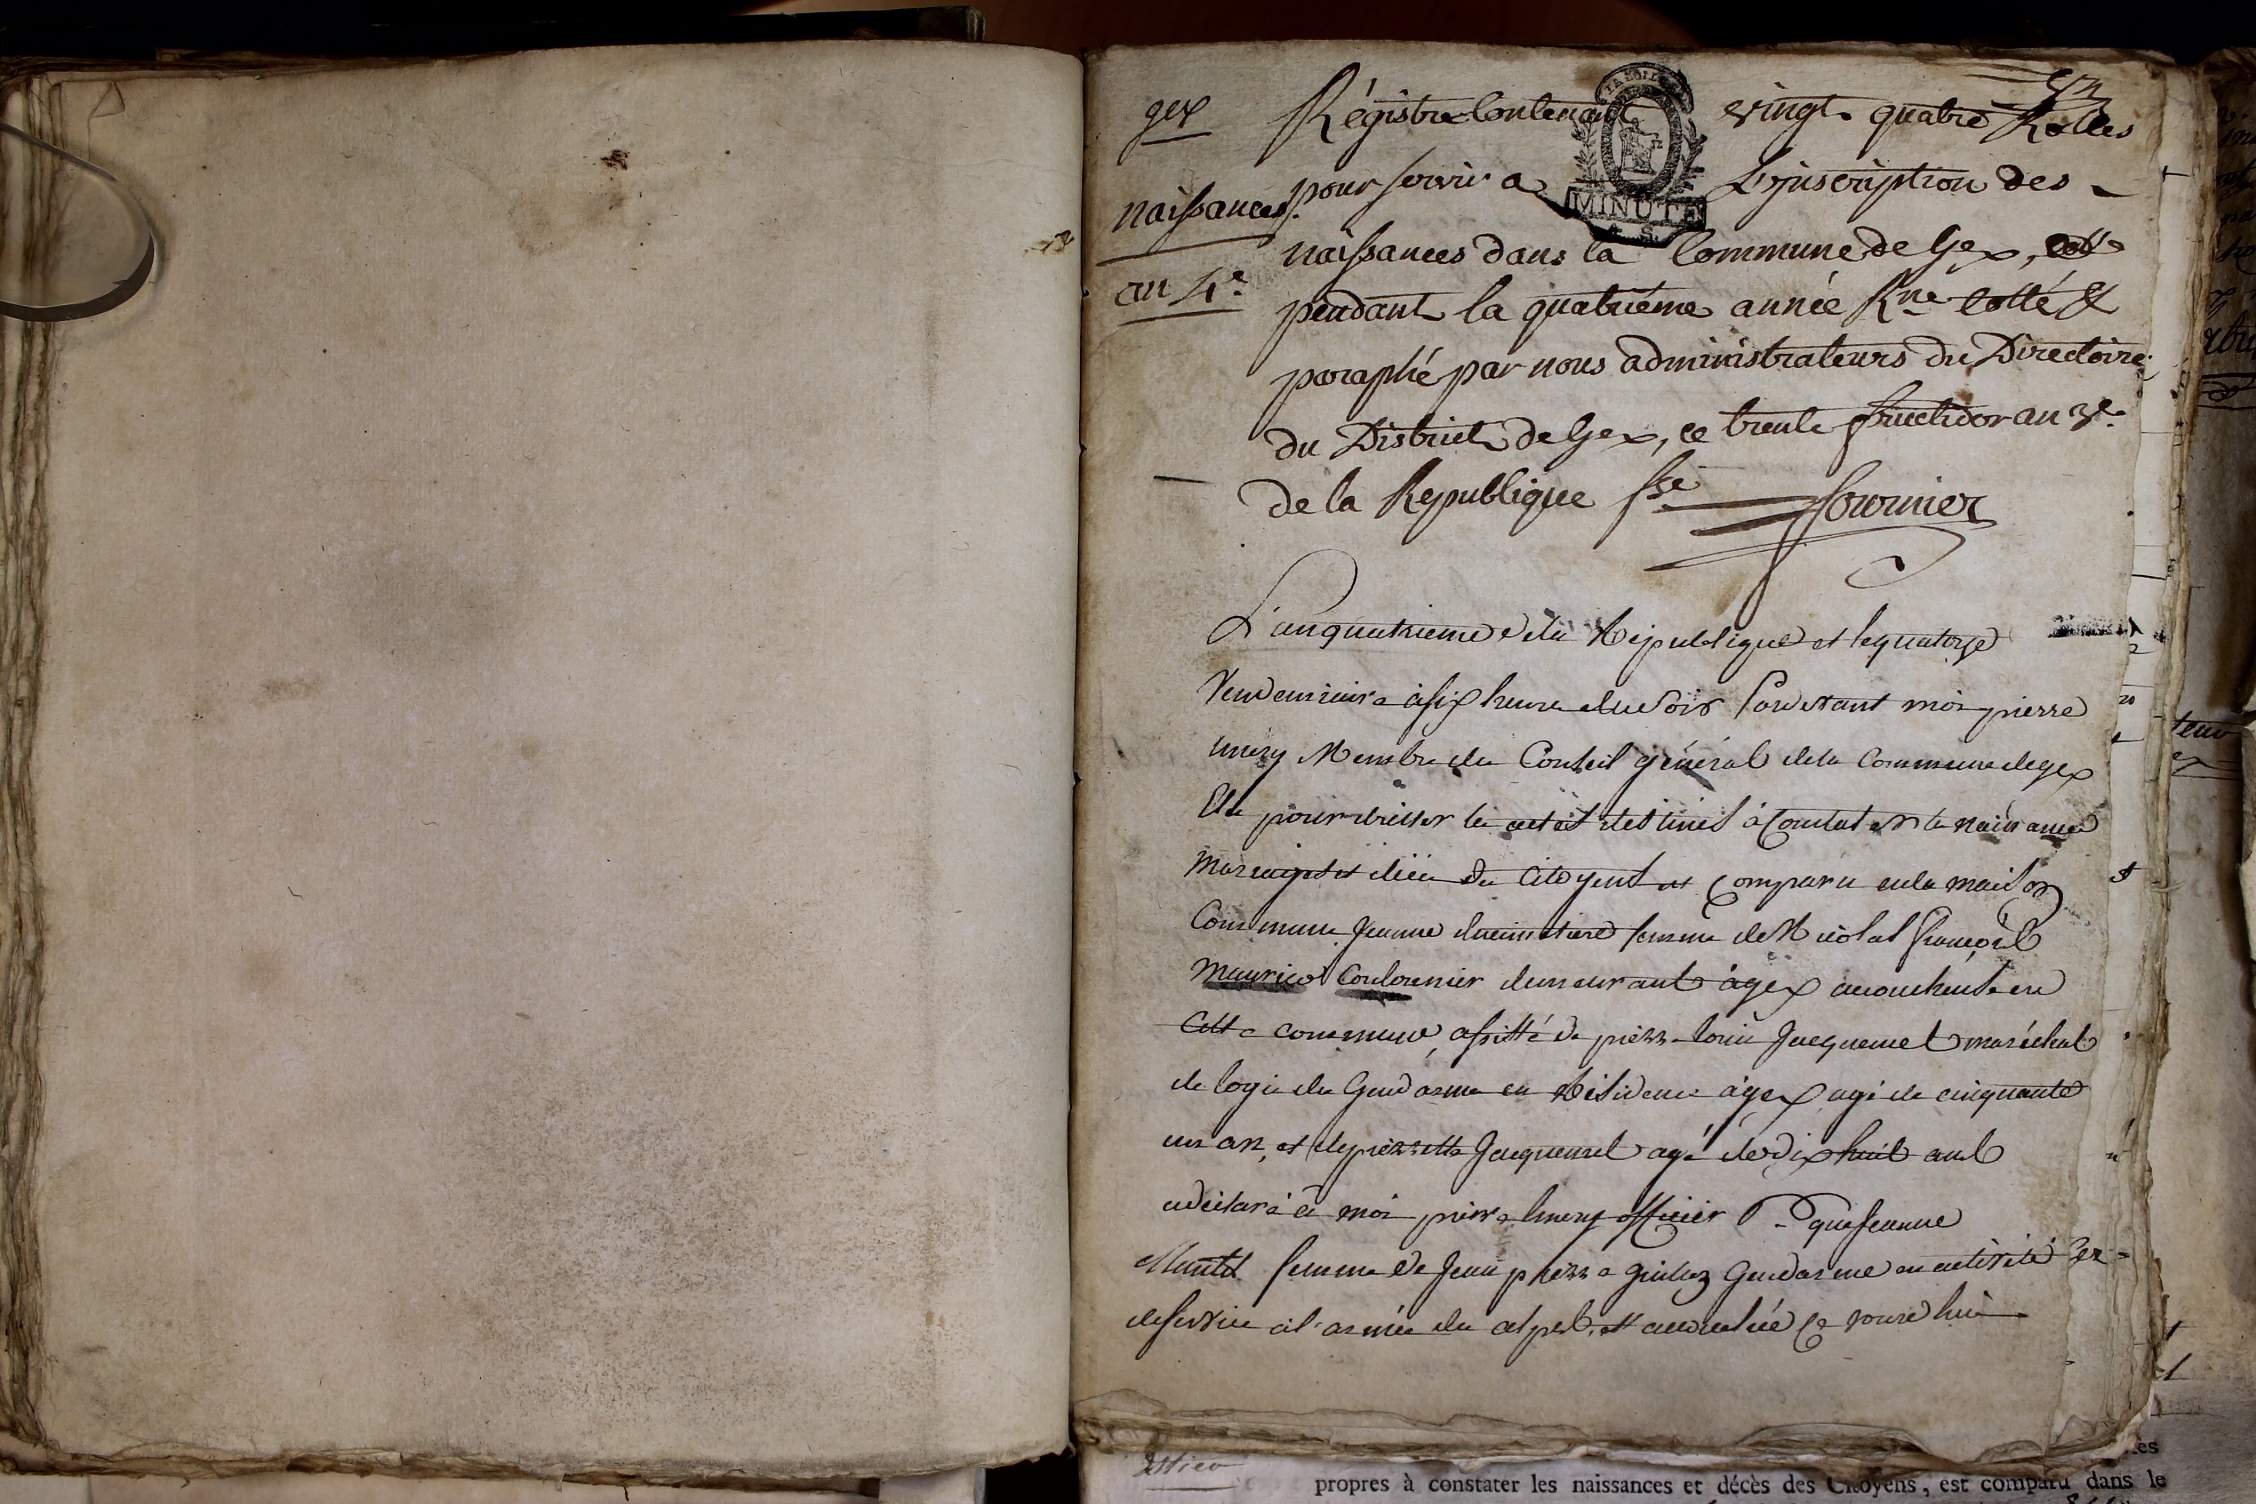 gex
naissances.
an 4e.
Régistre Contenant vingt quatre Rolles
pour servir a L'inscription des
naissances dans la Commune de Gex,
pendant la quatrieme année Rne cotté &
paraphé par nous administrateurs du Directoire
du District de Gex, ce trente fructidor an 3e.
de la Republique
fournier
MINUTE
L'an quatrieme de la République et le quatorze
Vendemiaire à six heure du soir pardevant moi pierre
Emery Membre du Conseil général de la Commune de gex
Elu pour dresser les actes destinés à Constater les naissance
Mariages et décès des Citoyens est Comparu en la maison
Commune Jeanne femme de Nicolas François
Maurice demeurant à gex accoucheuse en
cette commune, assisté de pierre louis Jacquemet maréchal
de logis de Gendarme en Résidence à gex agé de cinquante
un an, et de pierrette Jacquemet agé de dix huit ans
a déclaré à moi pierre Emery officier P. que Jeanne
femme de Jean pierre Gendarme en activité
de service à l'armée des alpes, est accouchée ce jourd'hui
propres à constater les naissances et décès des Citoyens, est comparu dans le